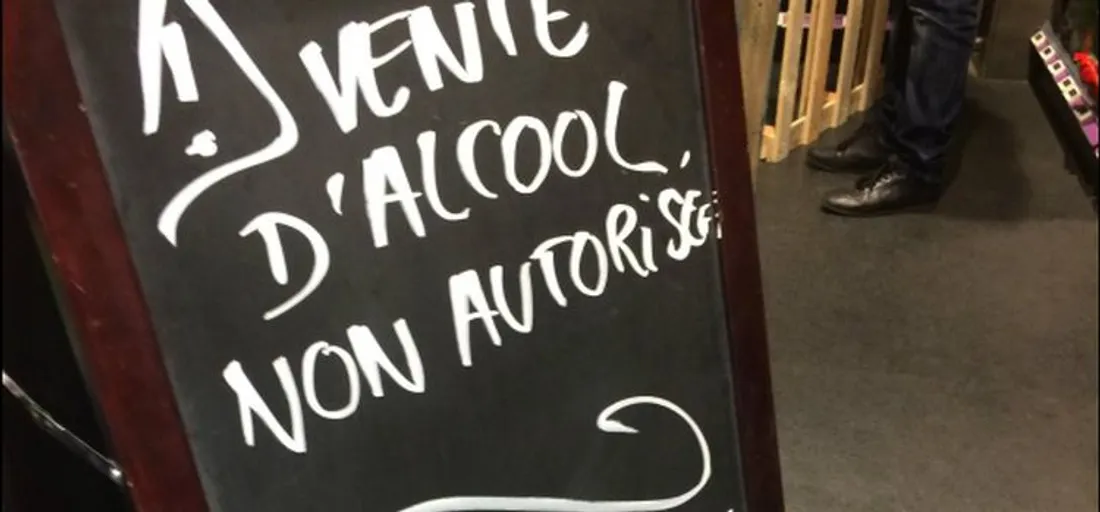 VENTE
D'ALCOOL
NON AUTORISÉE